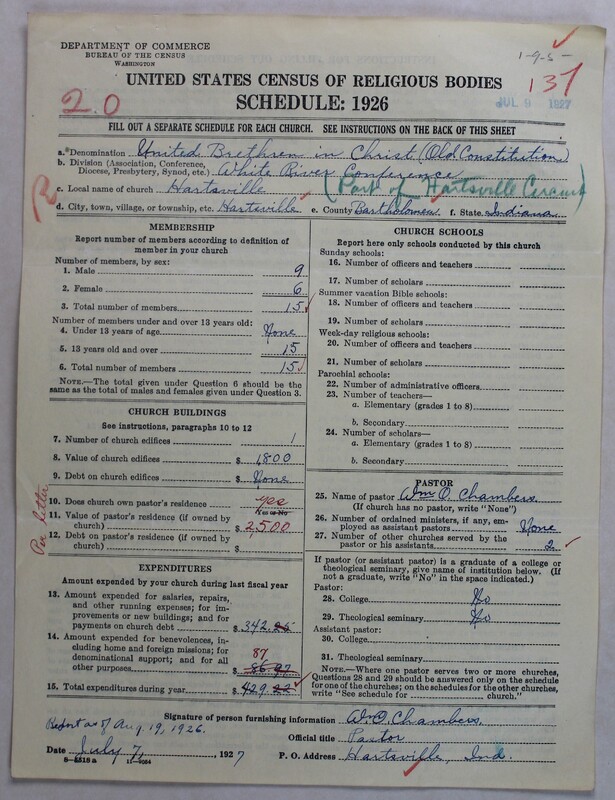 DEPARTMENT OF COMMERCE
BUREAU OF THE CENSUS
WASHINGTON
1-9-5-
137
JUL 9 1927
2.0
UNITED STATES CENSUS OF RELIGIOUS BODIES
SCHEDULE: 1926
FILL OUT A SEPARATE SCHEDULE FOR EACH CHURCH. SEE INSTRUCTIONS ON THE BACK OF THIS SHEET
a.* Denomination United Brethren in Christ (Old Constitution)
b. Division (Association, Conference, Diocese, Presbytery, Synod, etc.) White River Conference
c. Local name of church Hartsville (Part of Hartsville Circuit)
d. City, town, village, or township, etc. Hartsville e. County Bartholomew f. State Indiana
MEMBERSHIP
Report number of members according to definition of member in your church
Number of members, by sex:
1. Male 9
2. Female 6
3. Total number of members 15
Number of members under and over 13 years old:
4. Under 13 years of age None
5. 13 years old and over 15
6. Total number of members 15
NOTE.—The total given under Question 6 should be the same as the total of males and females given under Question 3.
CHURCH BUILDINGS
See instructions, paragraphs 10 to 12
7. Number of church edifices 1
8. Value of church edifices $ 1800
9. Debt on church edifices $ None
Per letter
10. Does church own pastor's residence yes
Yes or No
11. Value of pastor's residence (if owned by church) $ 2500
12. Debt on pastor's residence (if owned by church) $
EXPENDITURES
Amount expended by your church during last fiscal year
13. Amount expended for salaries, repairs, and other running expenses; for improvements or new buildings; and for payments on church debt $ 342.25
14. Amount expended for benevolences, including home and foreign missions; for denominational support; and for all other purposes $ 86.97
87
15. Total expenditures during year $ 429.22
CHURCH SCHOOLS
Report here only schools conducted by this church
Sunday schools:
16. Number of officers and teachers
17. Number of scholars
Summer vacation Bible schools:
18. Number of officers and teachers
19. Number of scholars
Week-day religious schools:
20. Number of officers and teachers
21. Number of scholars
Parochial schools:
22. Number of administrative officers
23. Number of teachers—
a. Elementary (grades 1 to 8)
b. Secondary
24. Number of scholars—
a. Elementary (grades 1 to 8)
b. Secondary
PASTOR
25. Name of pastor Wm O. Chambers.
(If church has no pastor, write "None")
26. Number of ordained ministers, if any, employed as assistant pastors None
27. Number of other churches served by the pastor or his assistants 2
If pastor (or assistant pastor) is a graduate of a college or theological seminary, give name of institution below. (If not a graduate, write "No" in the space indicated.)
Pastor:
28. College No
29. Theological seminary No
Assistant pastor:
30. College
31. Theological seminary
NOTE.—Where one pastor serves two or more churches, Questions 28 and 29 should be answered only on the schedule for one of the churches; on the schedules for the other churches, write "See schedule for ______ church."
Signature of person furnishing information W.O. Chambers.
Report as of Aug. 19, 1926.
Official title Pastor
Date July 7, 1927
P. O. Address Hartsville, Ind.
8-5518 a 11-9024